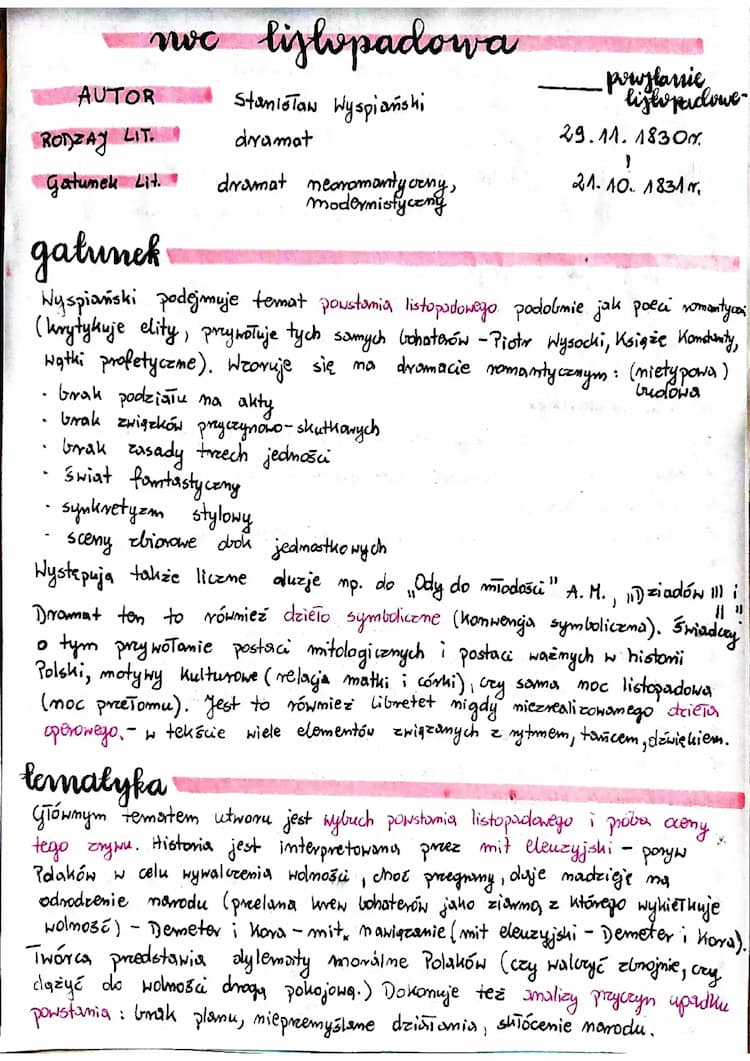 noc listopadowa
AUTOR Stanisław Wyspiański
powstanie listopadowe-
RODZAJ LIT. dramat
29.11.1830r.
Gatunek Lit. dramat neoromantyczny, modernistyczny
21.10.1831r.
gatunek
Wyspiański podejmuje temat powstania listopadowego podobnie jak poeci romantyczni
(krytykuje elity, przywołuje tych samych bohaterów - Piotr Wysocki, Książę Konstanty,
wątki profetyczne). Wzoruje się na dramacie romantycznym: (nietypowa budowa)
· brak podziału na akty
· brak związków przyczynowo-skutkowych
· brak zasady trzech jedności
· świat fantastyczny
· synkretyzm stylowy
· sceny zbiorowe obok jednostkowych
Występują także liczne aluzje np. do „Ody do młodości" A.M., „Dziadów III i II"
Dramat ten to również dzieło symboliczne (konwencja symboliczna). Świadczy
o tym przywołanie postaci mitologicznych i postaci ważnych w historii
Polski, motywy kulturowe (relacja matki i córki), czy sama noc listopadowa
(noc przełomu). Jest to również libretet nigdy niezrealizowanego dzieła
operowego. - w tekście wiele elementów związanych z rytmem, tańcem, dźwiękiem.
tematyka
Głównym tematem utworu jest wybuch powstania listopadowego i próba oceny
tego zrywu. Historia jest interpretowana przez mit eleuzyjski - poryw
Polaków w celu wywalczenia wolności, choć przegrany, daje nadzieję na
odrodzenie narodu (przelana krew bohaterów jako ziarno, z którego wykiełkuje
wolność) - Demeter i Kora - mit. nawiązanie (mit eleuzyjski - Demeter i Kora).
Twórca przedstawia dylematy moralne Polaków (czy walczyć zbrojnie, czy
dążyć do wolności drogą pokojową.) Dokonuje też analizy przyczyn upadku
powstania: brak planu, nieprzemyślane działania, skłócenie narodu.